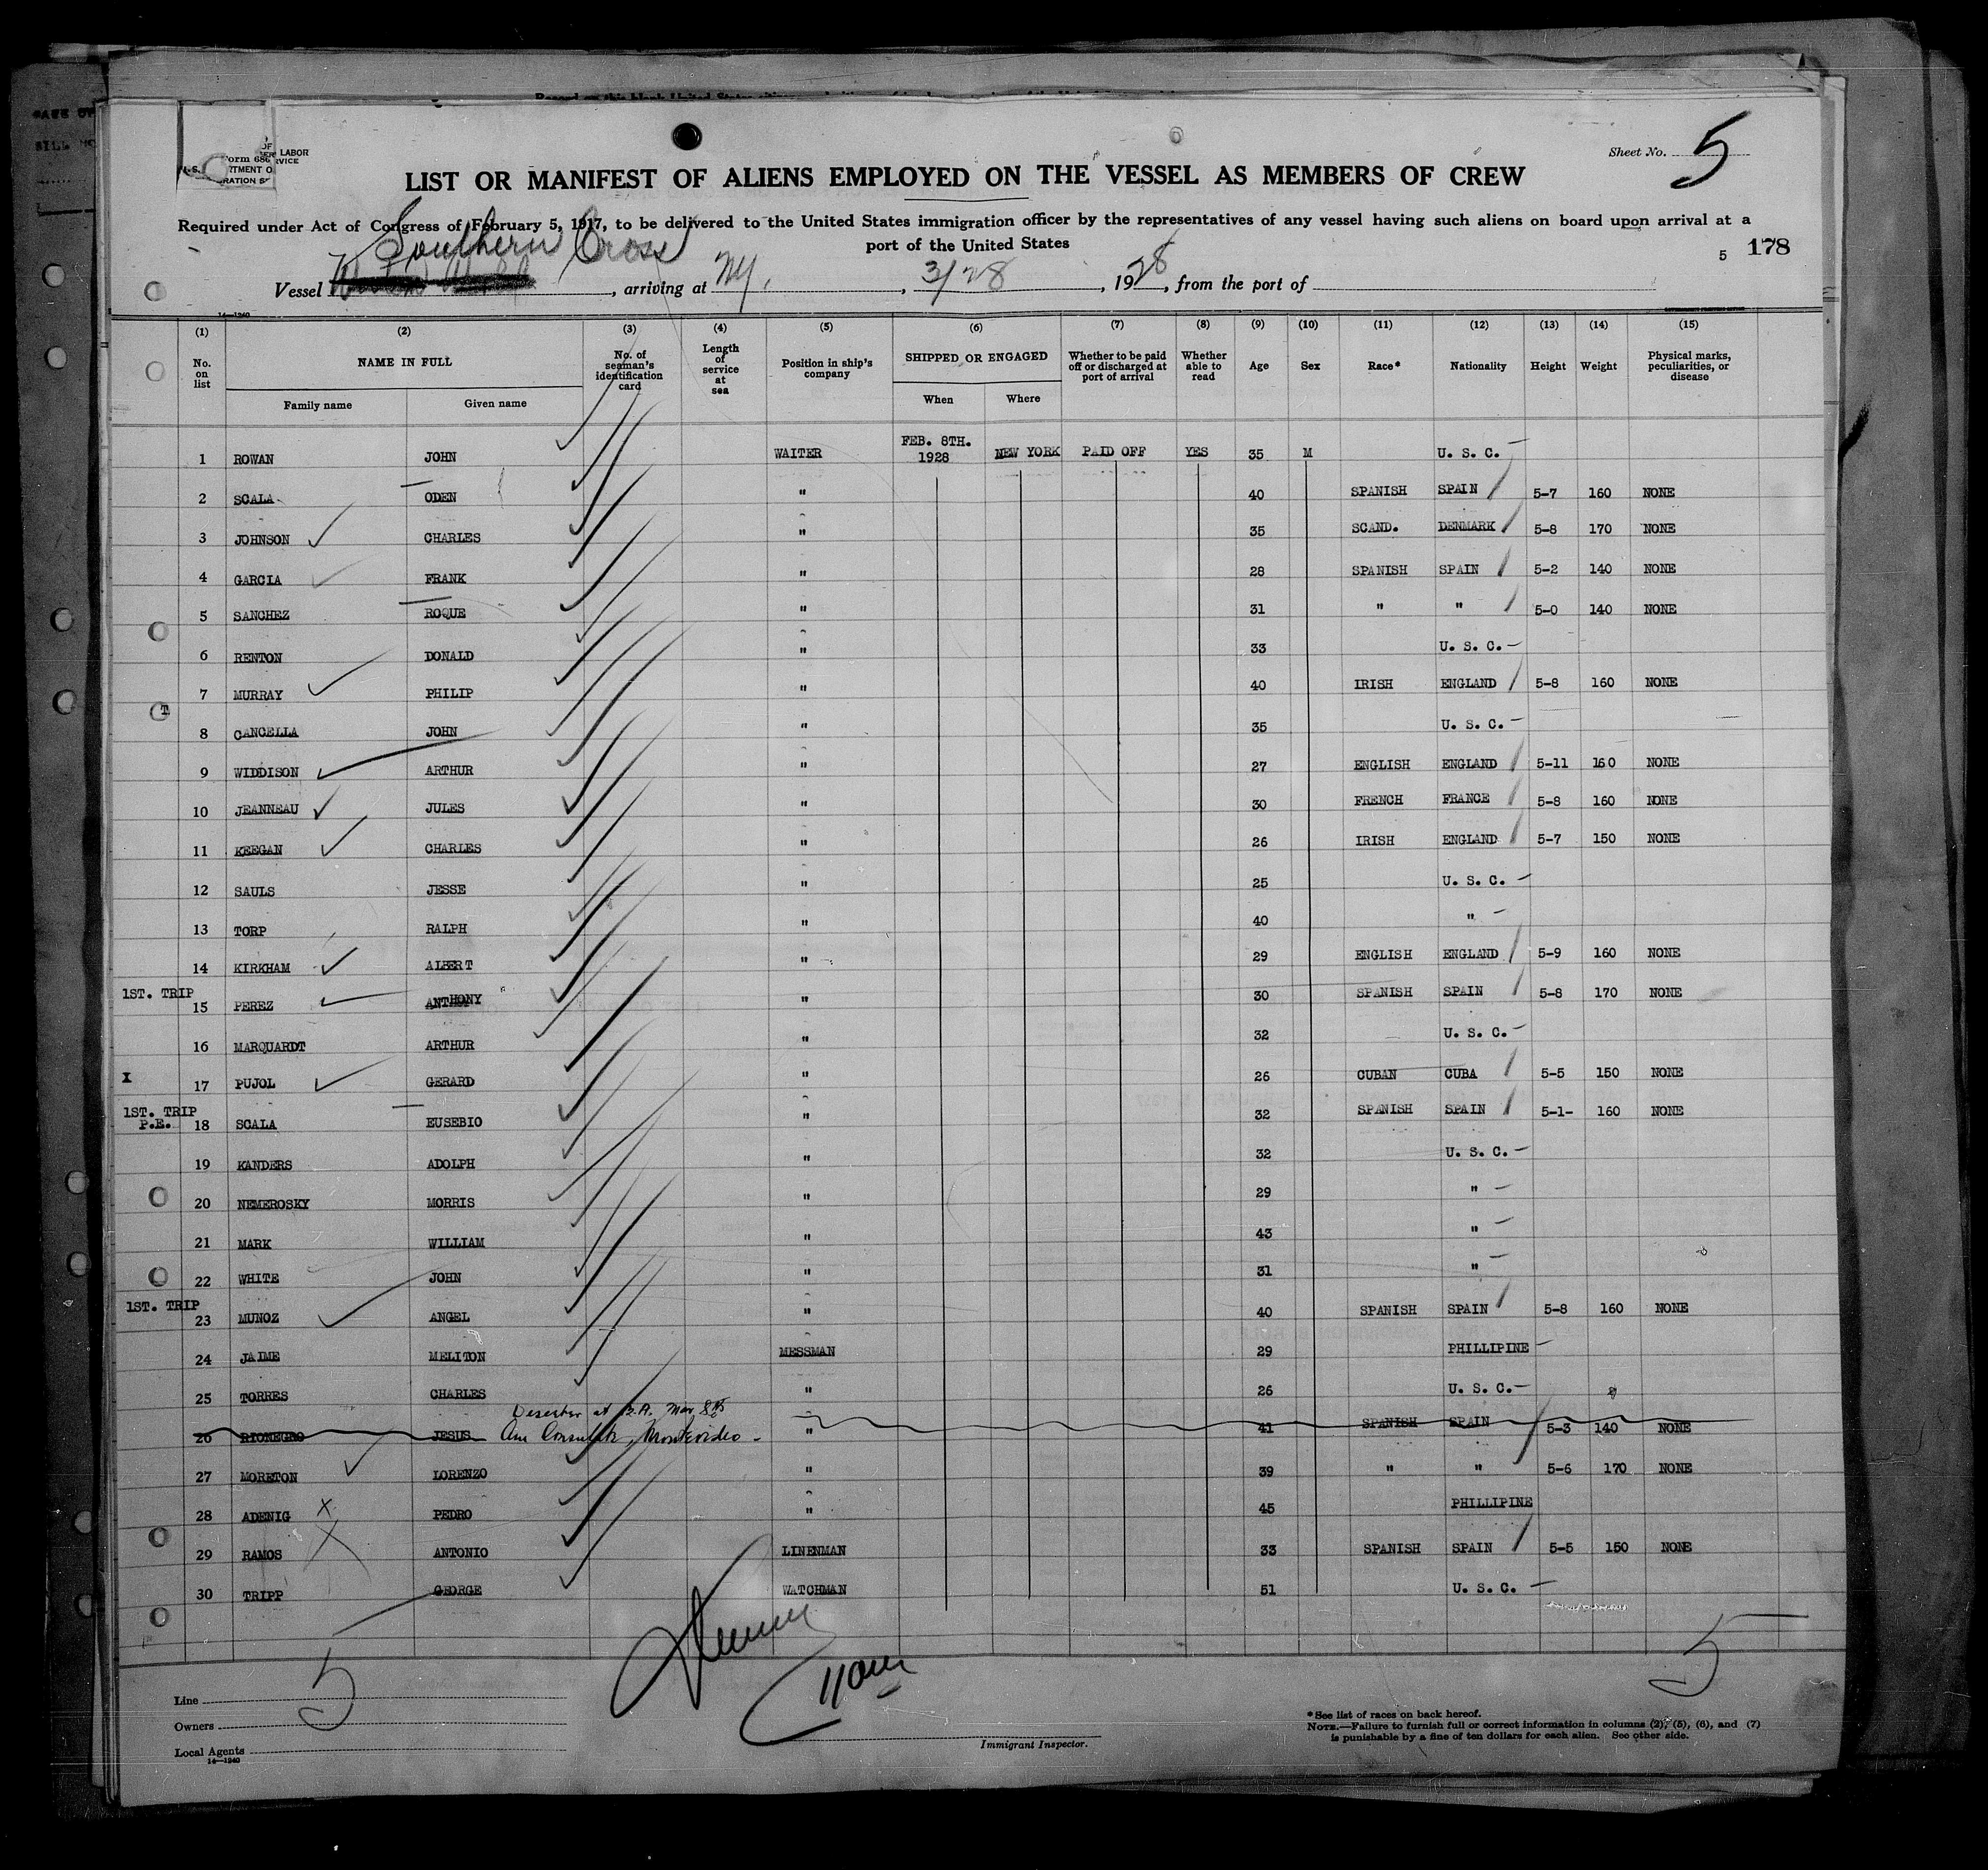 Sheet No. 5
LIST OR MANIFEST OF ALIENS EMPLOYED ON THE VESSEL AS MEMBERS OF CREW
Required under Act of Congress of February 5, 1917, to be delivered to the United States immigration officer by the representatives of any vessel having such aliens on board upon arrival at a
port of the United States
5 178
Southern Cross
Vessel , arriving at NY, , 3/28 , 1928, from the port of
14—1240
(1) (2) (3) (4) (5) (6) (7) (8) (9) (10) (11) (12) (13) (14) (15)
No. on list NAME IN FULL No. of seaman's identification card Length of service at sea Position in ship's company SHIPPED OR ENGAGED Whether to be paid off or discharged at port of arrival Whether able to read Age Sex Race* Nationality Height Weight Physical marks, peculiarities, or disease
Family name Given name When Where
1 ROWAN JOHN WAITER FEB. 8TH. 1928 NEW YORK PAID OFF YES 35 M U. S. C.
2 SCALA ODEN " 40 SPANISH SPAIN 5-7 160 NONE
3 JOHNSON CHARLES " 35 SCAND. DENMARK 5-8 170 NONE
4 GARCIA FRANK " 28 SPANISH SPAIN 5-2 140 NONE
5 SANCHEZ ROQUE " 31 " " 5-0 140 NONE
6 RENTON DONALD " 33 U. S. C.
7 MURRAY PHILIP " 40 IRISH ENGLAND 5-8 160 NONE
T
8 CANCELLA JOHN " 35 U. S. C.
9 WIDDISON ARTHUR " 27 ENGLISH ENGLAND 5-11 160 NONE
10 JEANNEAU JULES " 30 FRENCH FRANCE 5-8 160 NONE
11 KEEGAN CHARLES " 26 IRISH ENGLAND 5-7 150 NONE
12 SAULS JESSE " 25 U. S. C.
13 TORP RALPH " 40 "
14 KIRKHAM ALBERT " 29 ENGLISH ENGLAND 5-9 160 NONE
1ST. TRIP 15 PEREZ ANTHONY " 30 SPANISH SPAIN 5-8 170 NONE
16 MARQUARDT ARTHUR " 32 U. S. C.
X 17 PUJOL GERARD " 26 CUBAN CUBA 5-5 150 NONE
1ST. TRIP P.E. 18 SCALA EUSEBIO " 32 SPANISH SPAIN 5-1- 160 NONE
19 KANDERS ADOLPH " 32 U. S. C.
20 NEMEROSKY MORRIS " 29 "
21 MARK WILLIAM " 43 "
22 WHITE JOHN " 31 "
1ST. TRIP 23 MUNOZ ANGEL " 40 SPANISH SPAIN 5-8 160 NONE
24 JAIME MELITON MESSMAN 29 PHILLIPINE
25 TORRES CHARLES " 26 U. S. C.
Deserter at B.A. Mar. 8th
26 RIONEGRO JESUS Am Consulate, Montevideo - " 41 SPANISH SPAIN 5-3 140 NONE
27 MORETON LORENZO " 39 " " 5-6 170 NONE
28 ADENIG X PEDRO " 45 PHILLIPINE
29 RAMOS X ANTONIO LINENMAN 33 SPANISH SPAIN 5-5 150 NONE
30 TRIPP GEORGE WATCHMAN 51 U. S. C.
5 5
Line
Owners
Local Agents
14—1240
Immigrant Inspector.
*See list of races on back hereof.
NOTE.—Failure to furnish full or correct information in columns (2), (5), (6), and (7)
is punishable by a fine of ten dollars for each alien. See other side.